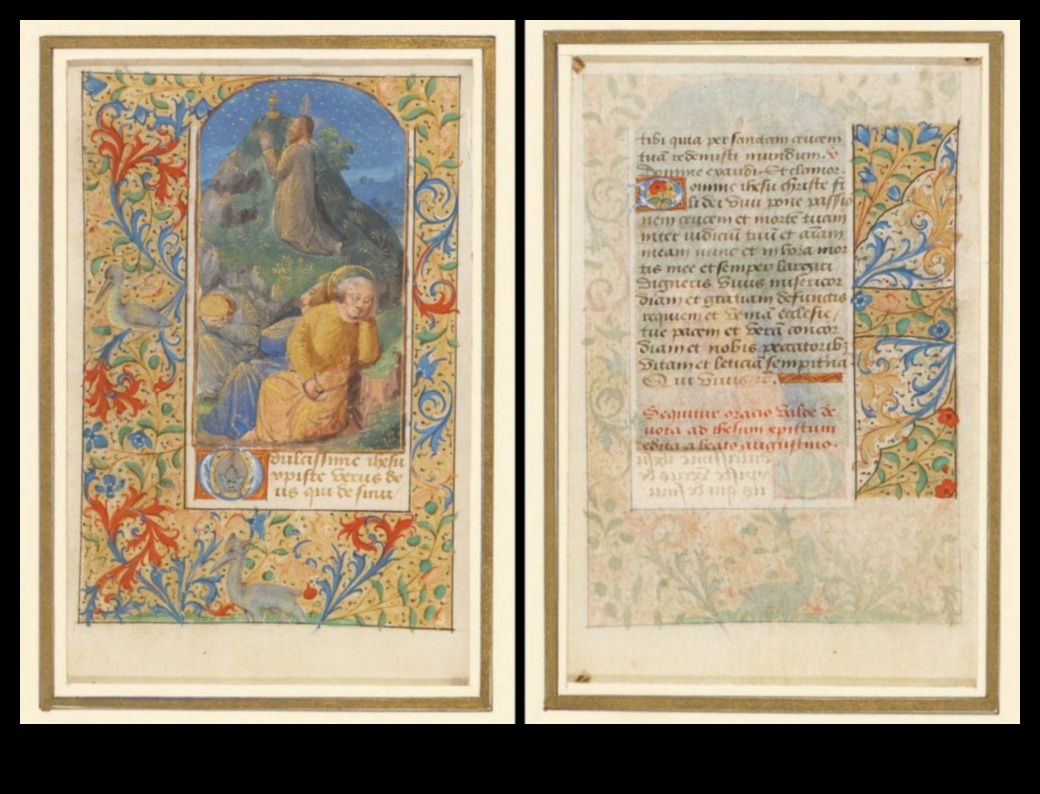 dulcissime ihesu
xpiste verus de
us qui de sinu
tibi quia per sanctam crucem
tuā redemisti mundum. V
Domine exaudi. Et clamor.
Domine ihesu christe fi
li dei vivi pone passio
nem crucem et mortē tuam
inter iudiciū tuū et aīam
meam nunc et in hora mor
tis mee et semper largiri
digneris vivis misericor
diam et gratiam defunctis
requiem et veniā ecclesie
tue pacem et verā concor
diam et nobis peccatoribz
vitam et leticiā sempiternā
Qui vivis
Sequitur oracio valde de
vota ad ihesum xpistum
edita a beato augustino.